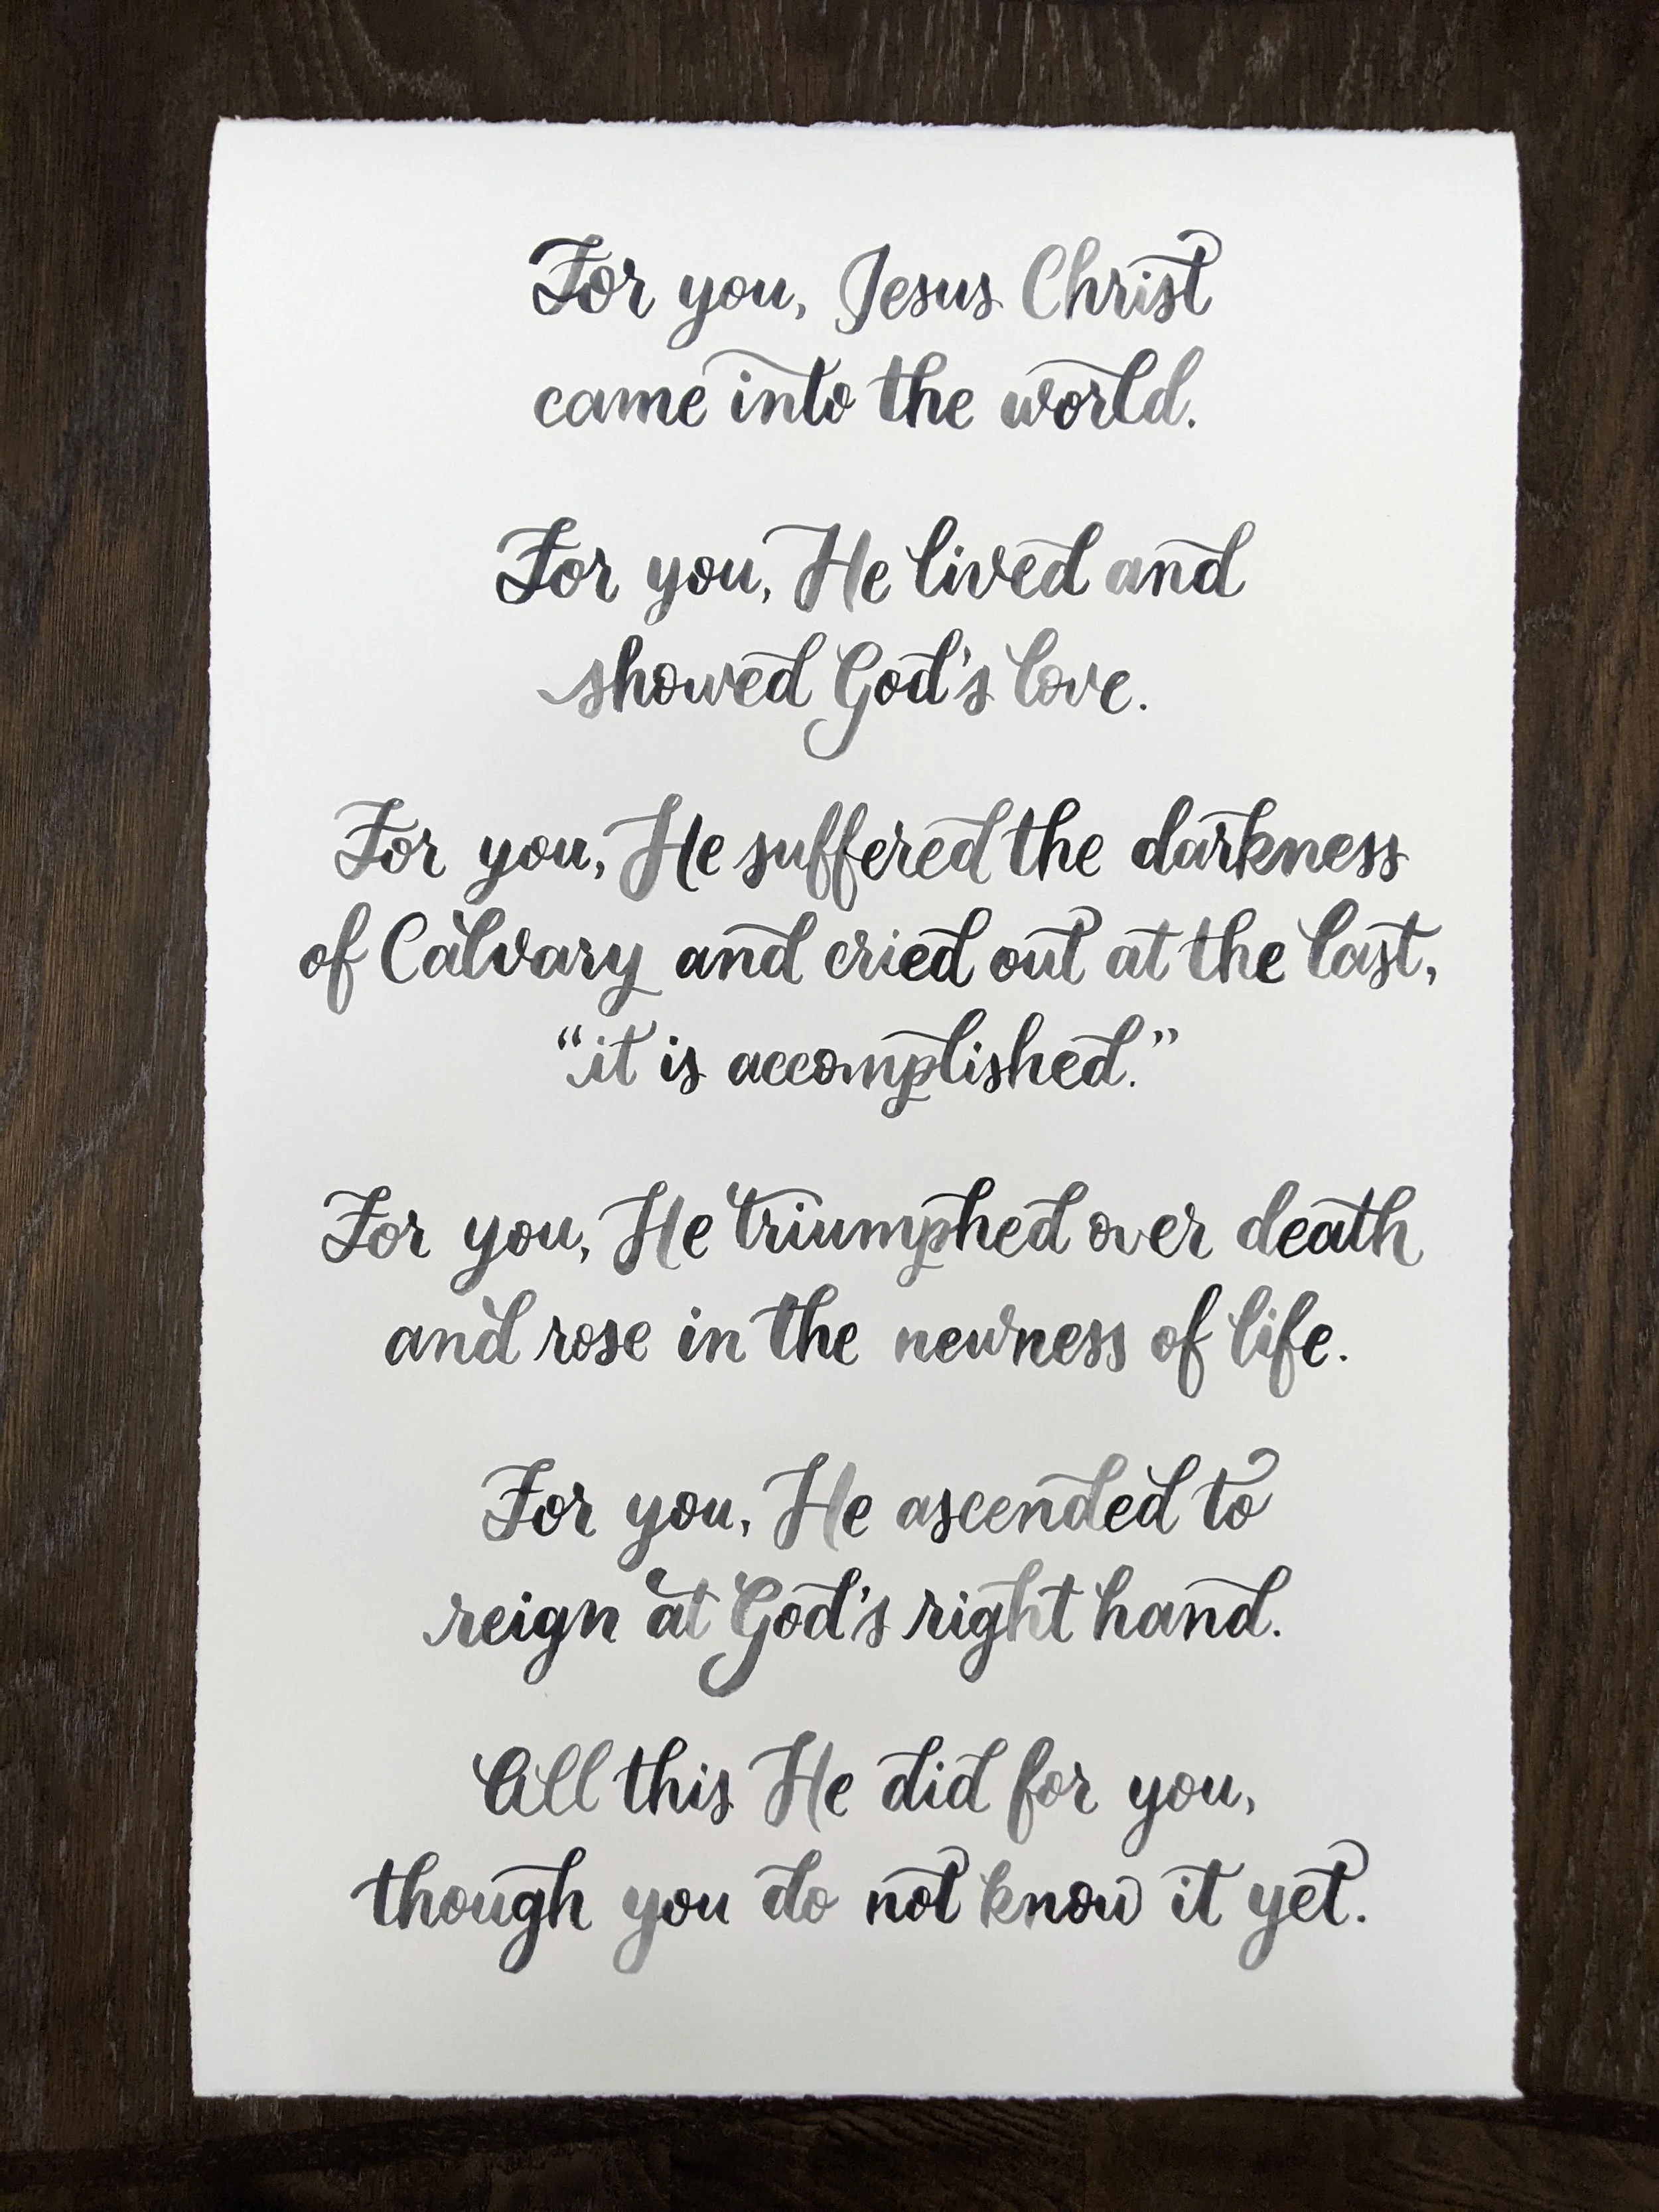 For you, Jesus Christ
came into the world.
For you, He lived and
showed God's love.
For you, He suffered the darkness
of Calvary and cried out at the last,
“it is accomplished.”
For you, He triumphed over death
and rose in the newness of life.
For you, He ascended to
reign at God's right hand.
All this He did for you,
though you do not know it yet.